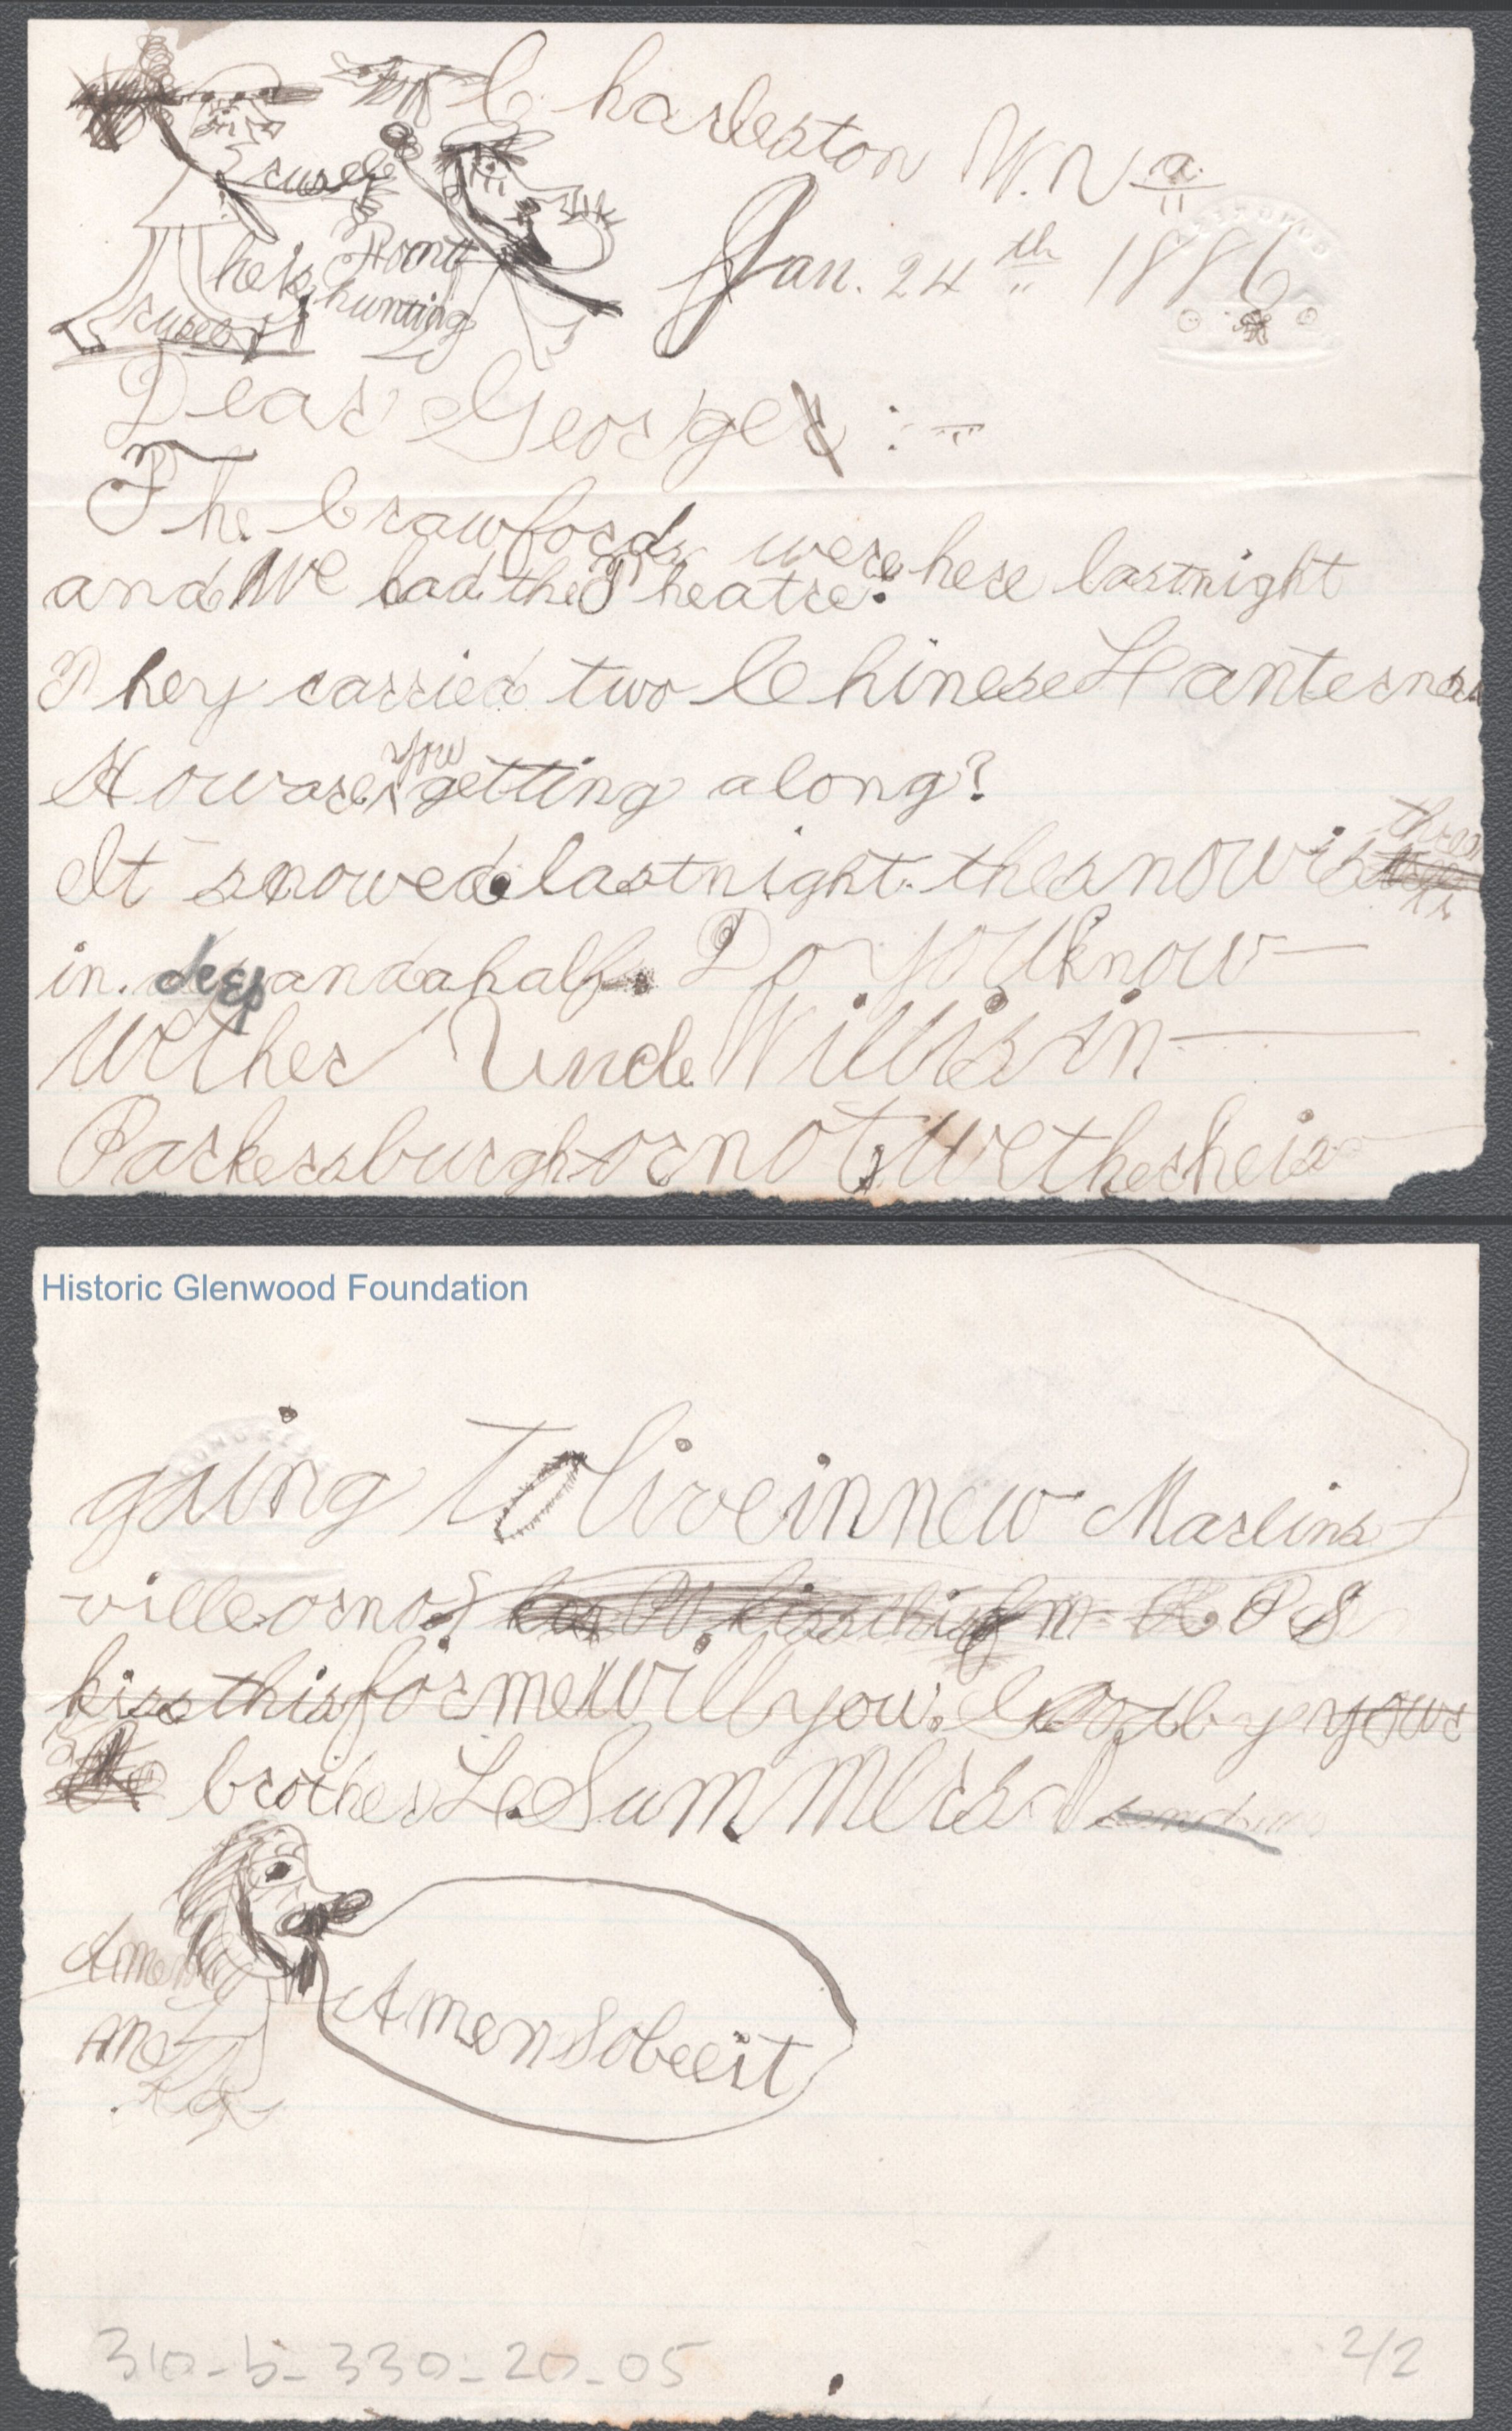 Charleston W.Va
Jan. 24th 1886
he is
hunting
Dear George :-
The Crawfords were here lastnight
and We had the Theatre.
They carried two Chinese Lanterns.
How are you getting along?
It snowed lastnight. the snow is
in. deep and a half. Do you know
wether Uncle Will is in
Parkersburgh or not, wether he is
Historic Glenwood Foundation
going to live in new Marlins
ville or not P S
kiss this for me will you. Good by your
brother L. Summers
Amen
Amen So be it
310-5-330-20-05
2/2